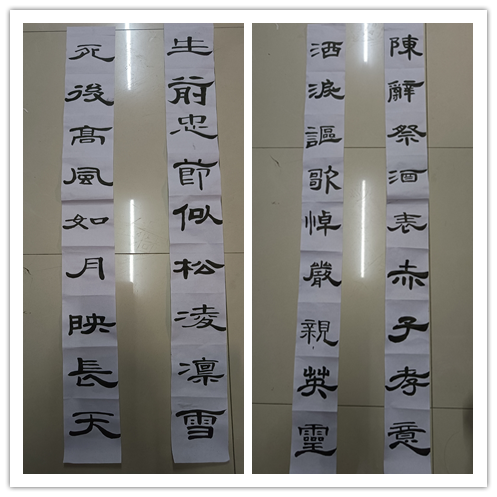 生前忠節似松凌凜雪
死後高風如月映長天
陳辭祭酒表赤子孝意
洒淚謳歌悼嚴親英靈